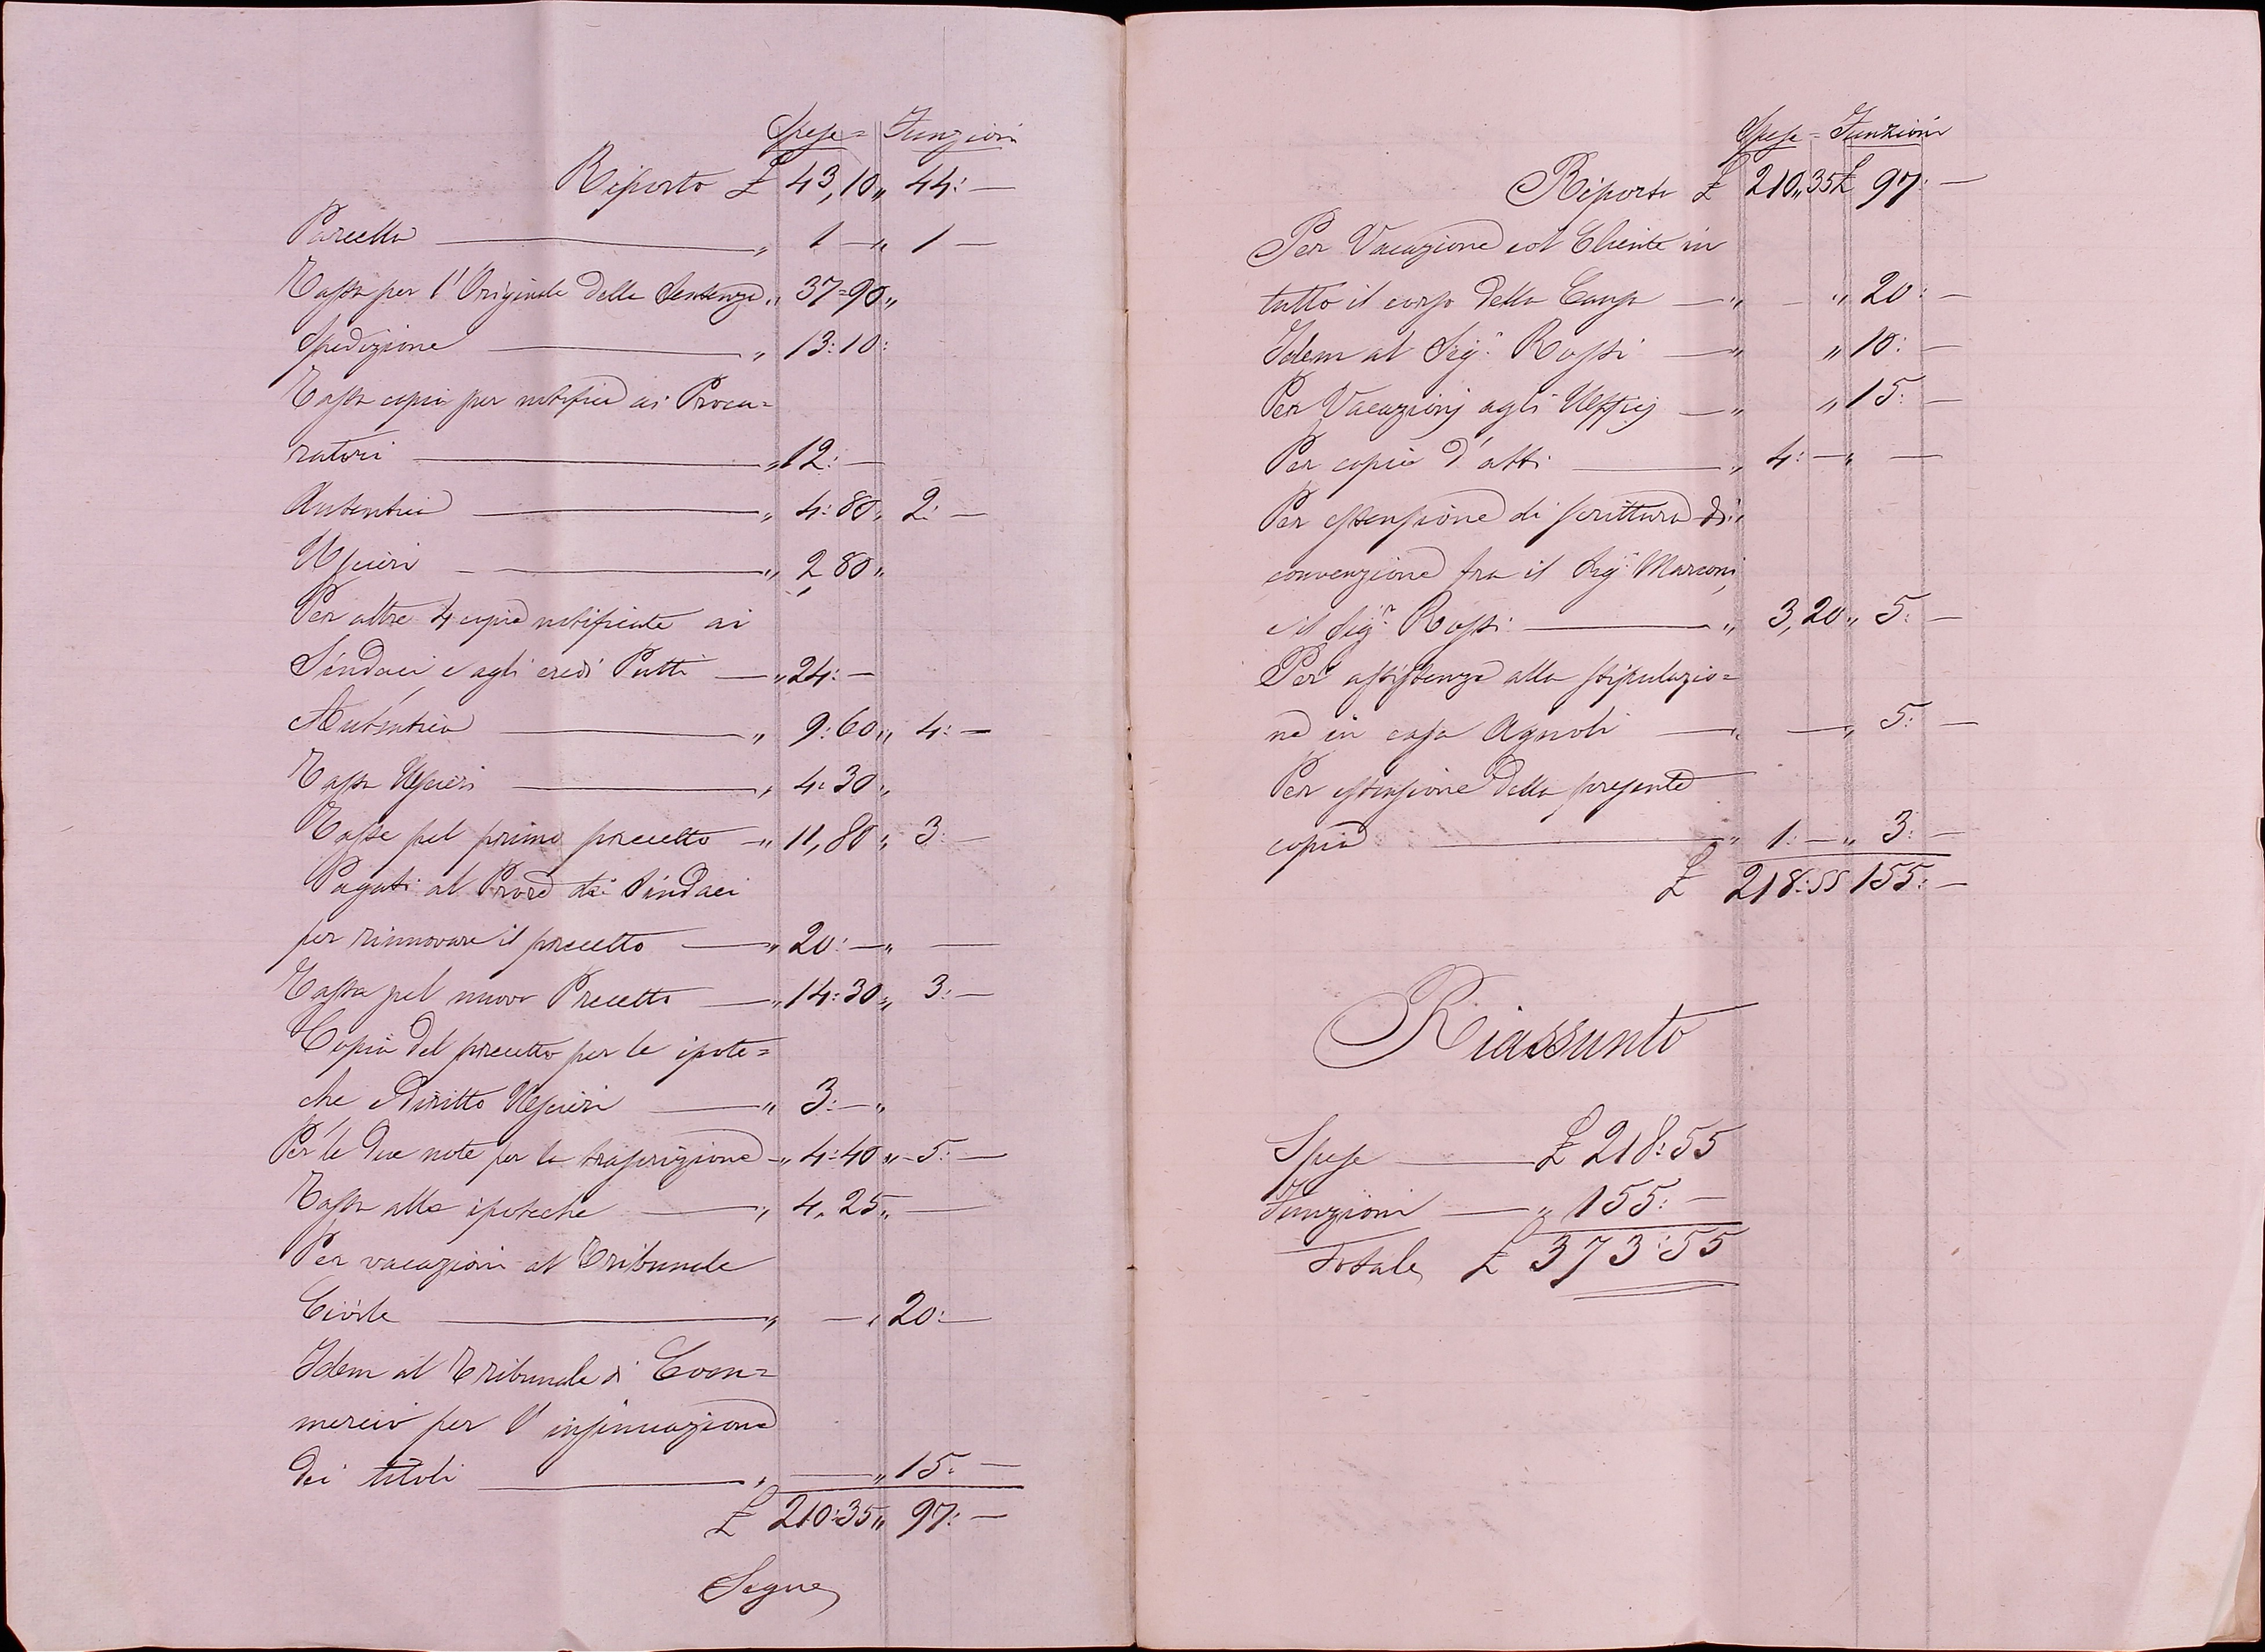 Spese = Funzioni
Riporto £ 43,10 „ 44: —
Parcella — „ 1 — „ 1 —
Tassa per l'Originale della Sentenza „ 37=90 „
Spedizione — „ 13:10:
Tassa copia per notifica ai Procu=
ratori — „ 12: —
Autentica — „ 4:80 „ 2: —
Uscieri — „ 2,80 „
Per altre 4 copie notificate ai
Sindaci e agli eredi Putti — „ 24: —
Autentica — „ 9:60 „ 4: —
Tassa Uscieri — „ 4:30 „
Tasse pel primo precetto — „ 11,80 „ 3: —
Pagati al Pror.e dei Sindaci
per rinnovare il precetto — „ 20: — „ —
Tassa pel nuovo Precetto — „ 14:30 „ 3: —
Copia del precetto per le ipote=
che e diritto Uscieri — „ 3: — „
Per le due note per la trascrizione — „ 4:40 „ 5: —
Tassa alle ipoteche — „ 4,25 „ —
Per vacazioni al Tribunale
Civile — „ — „ 20: —
Idem al Tribunale di Com=
mercio per l'insinuazione
dei titoli — „ — „ 15: —
£ 210:35 „ 97: —
Segue
Spese = Funzioni
Riporto £ 210„35 £ 97: —
Per Vacazione col Cliente in
tutto il corso della Causa — „ — „ 20: —
Idem al Sig.r Rossi — „ „ 10: —
Per Vacazionj agli Ufficj — „ „ 15: —
Per copie d'atti — „ 4: — „ —
Per estensione di scrittura di
convenzione fra il Sig.r Marconi,
e il Sig.r Rossi — „ 3,20 „ 5: —
Per assistenza alla stipulazio=
ne in casa Agnoli — „ — „ 5: —
Per estensione della presente
copia — „ 1: — „ 3: —
£ 218:55 155: —
Riassunto
Spese — £ 218:55
Funzioni — „ 155: —
Totale £ 373:55